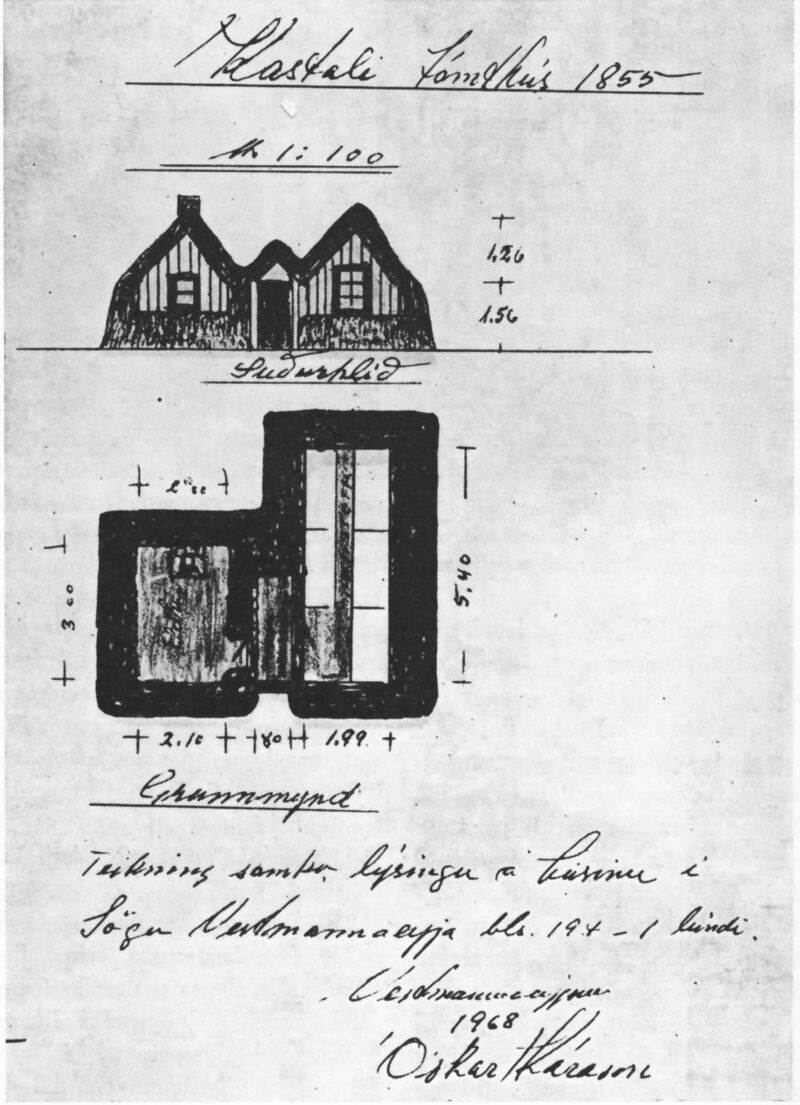 Kastali tómthús 1855
1:100
1.26
1.56
Suðurhlið
3.00
5.40
2.10
80
1.99
Grunnmynd
Teikning samkv. lýsingu á húsinu í
Sögu Vestmannaeyja bls. 194 – 1 bindi.
Vestmannaeyjum
1968
Óskar Kárason